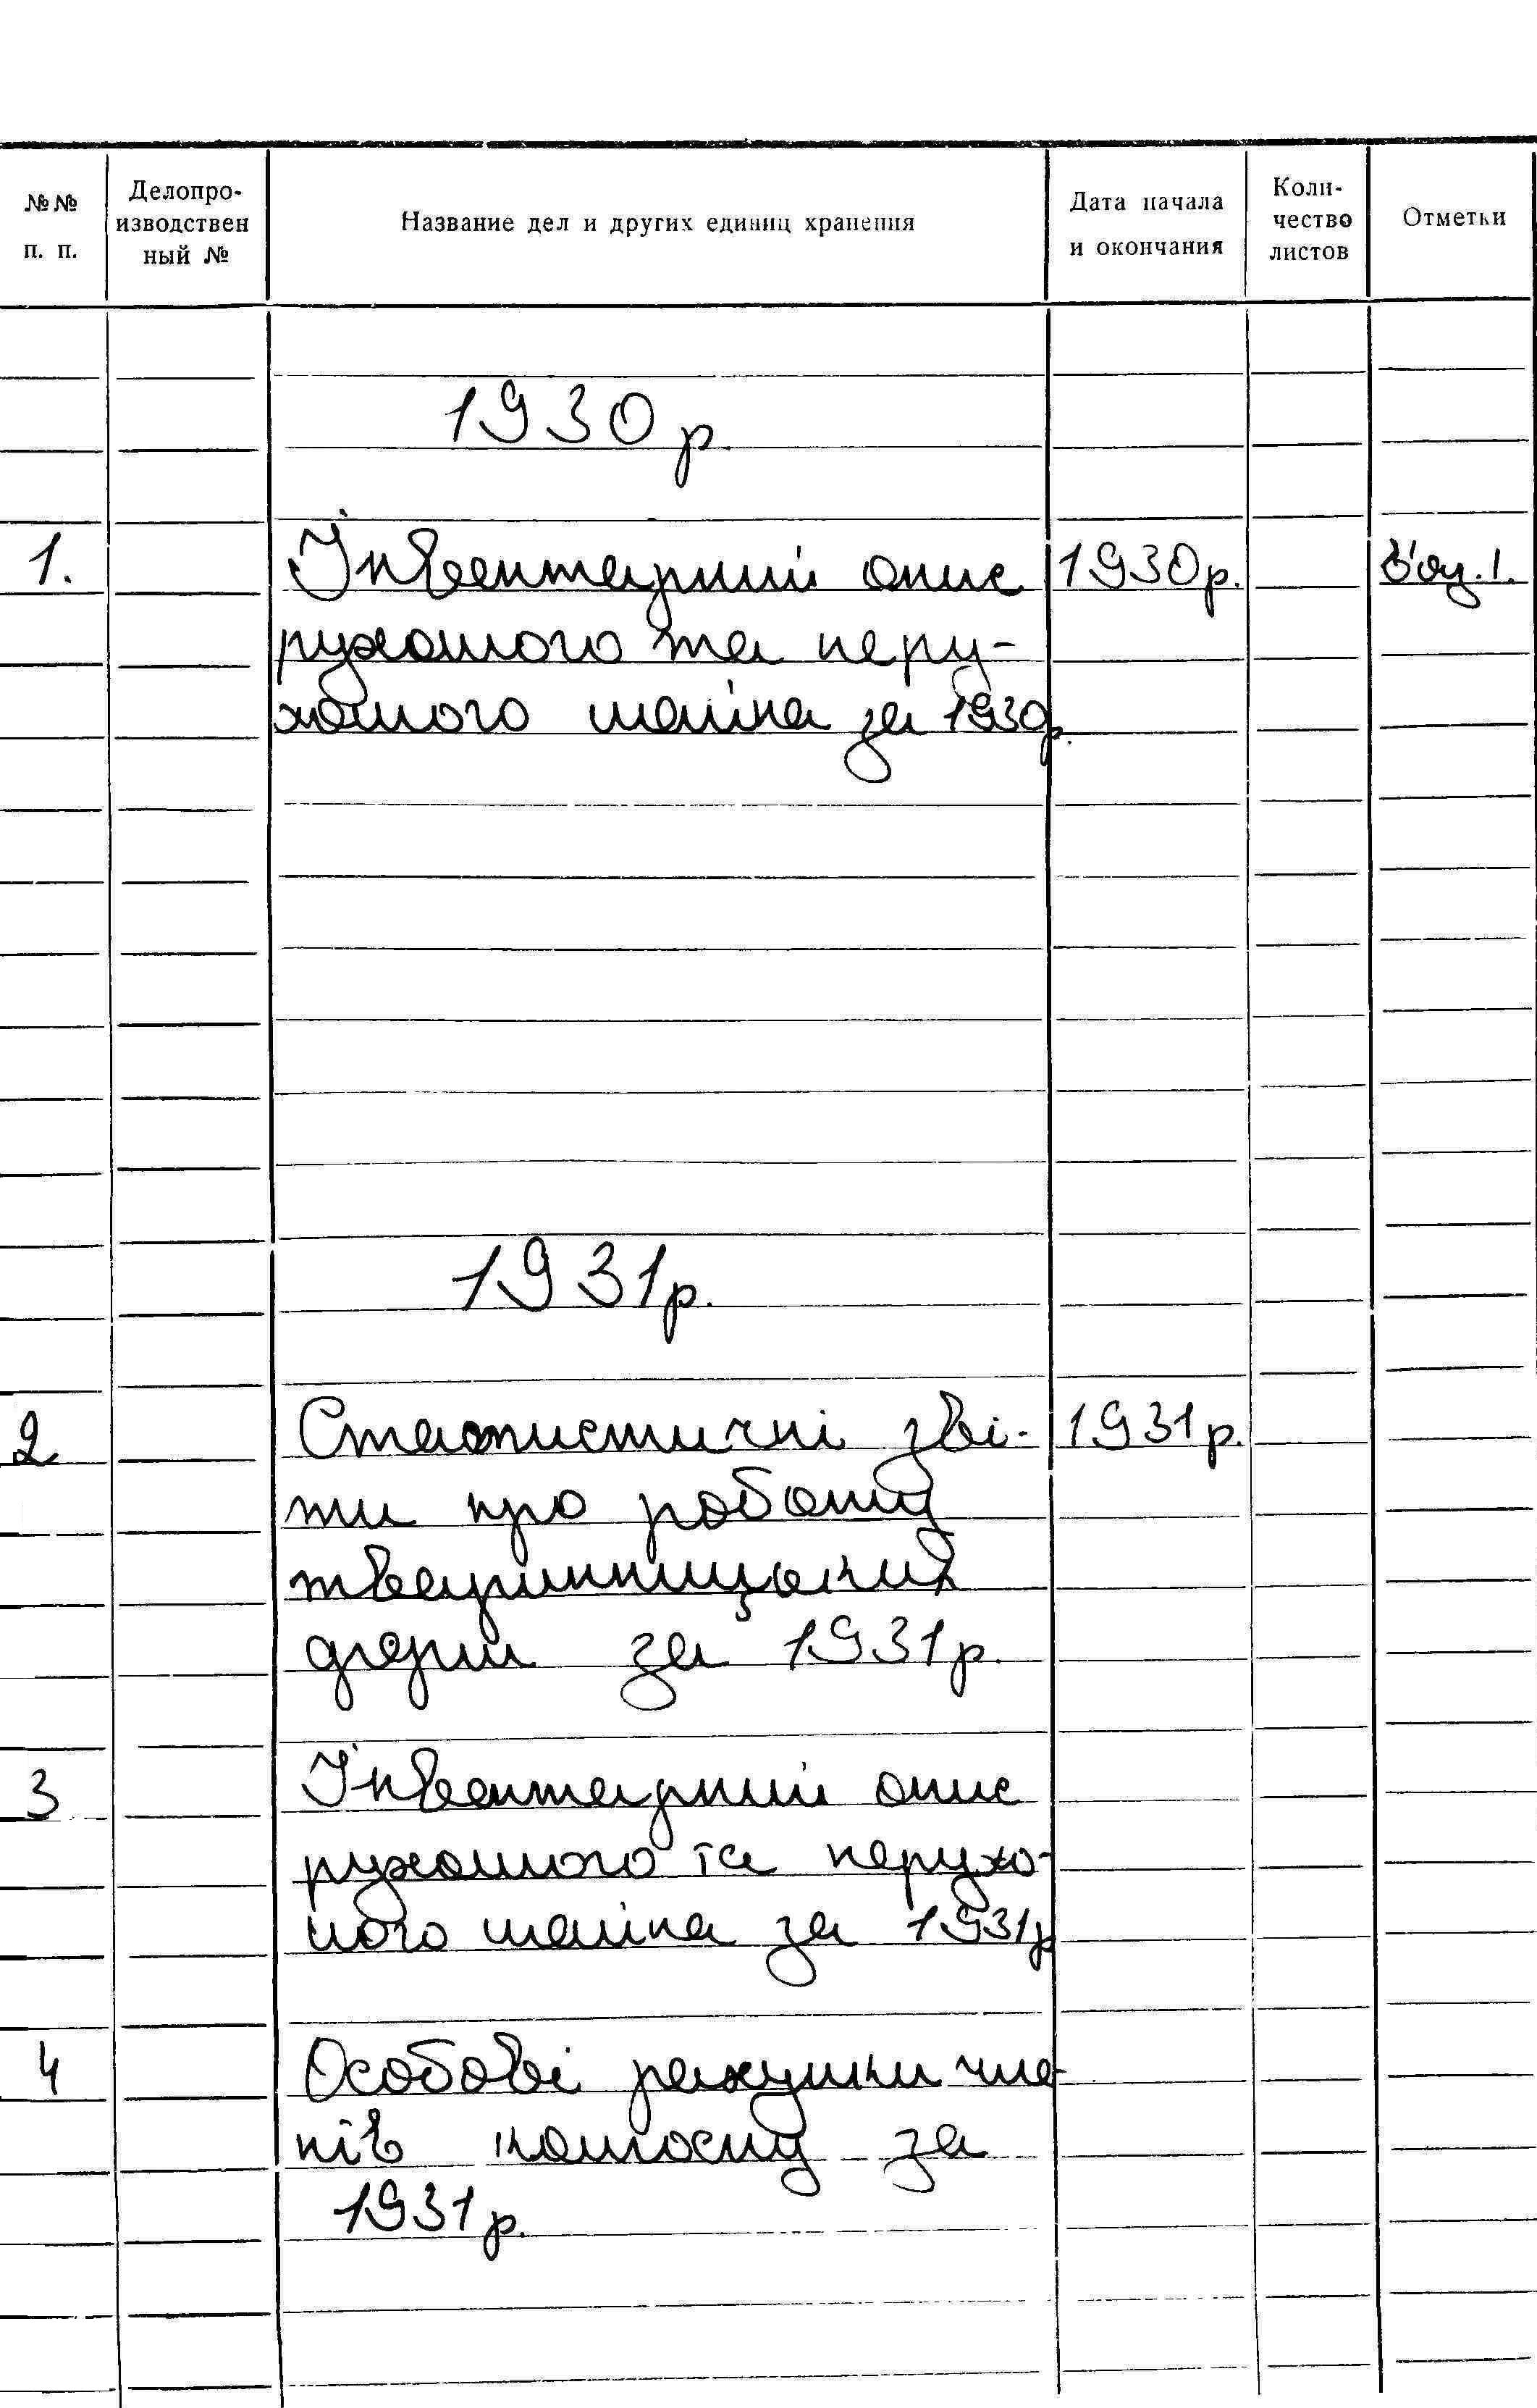 №№ п. п.
Делопро-
изводствен
ный №
Название дел и других единиц хранения
Дата начала
и окончания
Коли-
чество
листов
Отметки
1930 р.
1. Інвентарний опис 1930р.
рухомого та неру-
хомого майна за 1930р.
1931р.
2 Статистичні зві- 1931р.
ти про роботу
тваринницьких
ферм за 1931р.
3 Інвентарний опис
рухомого та нерухо-
мого майна за 1931р
4 Особові рахунки чле-
нів колгоспу за
1931р.